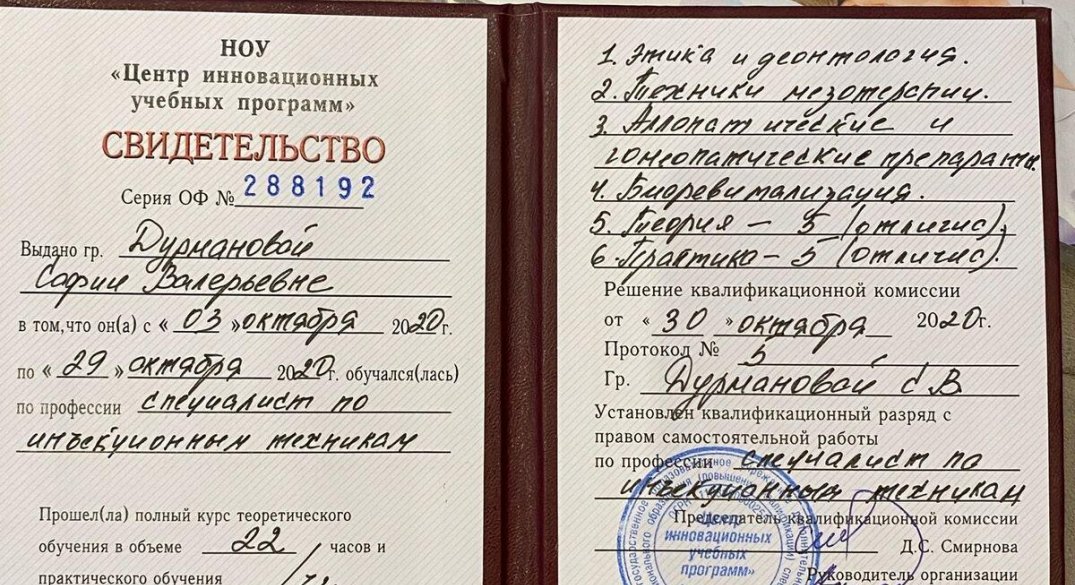 НОУ
«Центр инновационных
учебных программ»
СВИДЕТЕЛЬСТВО
Серия ОФ № 288192
Выдано гр. Дурмановой
Софии Валерьевне
в том,что он(а) с « 03 » октября 2020г.
по « 29 » октября 2020г. обучался(лась)
по профессии специалист по
инъекционным техникам
Прошел(ла) полный курс теоретического
обучения в объеме 22 часов и
практического обучения
1. Этика и деонтология.
2. Техники мезотерапии.
3. Аллопатические и
гомеопатические препараты.
4. Биоревитализация.
5. Теория – 5 (отличн).
6. Практика – 5 (отличн).
Решение квалификационной комиссии
от « 30 » октября 2020г.
Протокол № 5
Гр. Дурмановой С.В
Установлен квалификационный разряд с
правом самостоятельной работы
по профессии специалист по
инъекционным техникам
Председатель квалификационной комиссии
Д.С. Смирнова
Руководитель организации
Центр
инновационных
учебных
программ»